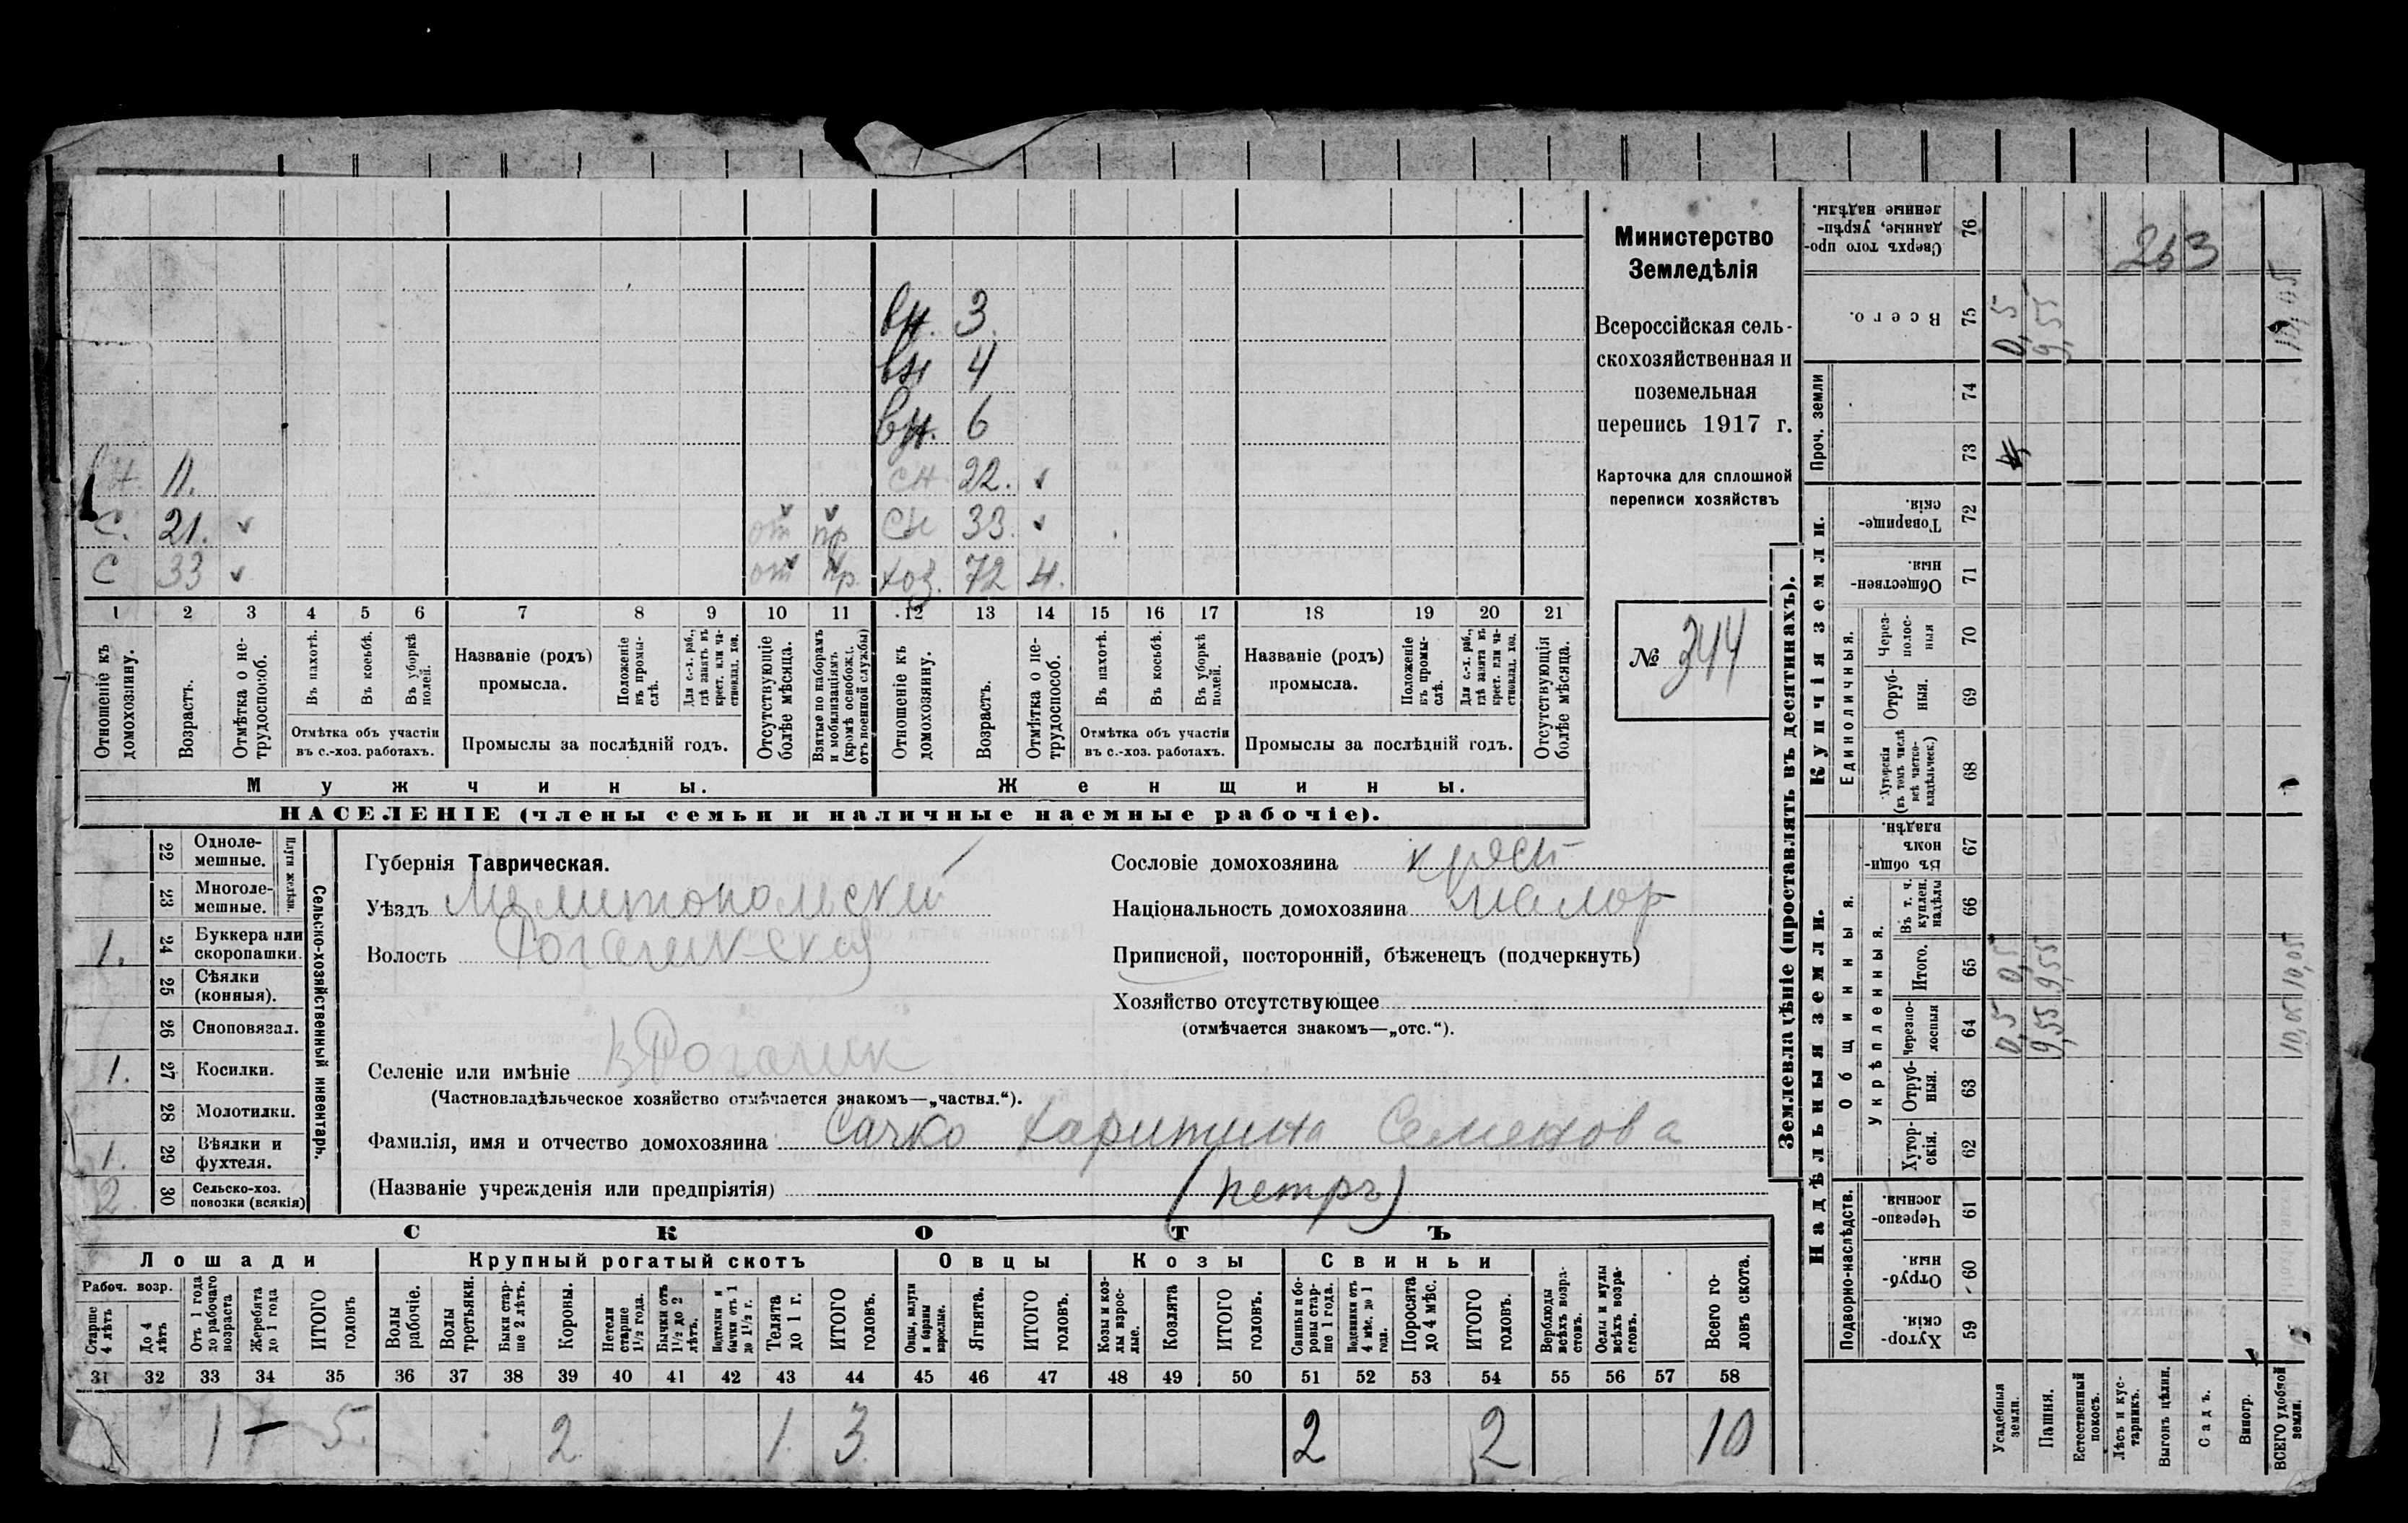 вн. 3.
вн 4
вн. 6
н. 11. сн. 22. v
с. 21. v от пр сн 33. v
с 33 v от пр. хоз. 72 н.
1 2 3 4 5 6 7 8 9 10 11 12 13 14 15 16 17 18 19 20 21
Отношеніе къ домохозяину.
Возрастъ.
Отмѣтка о не-трудоспособ.
Въ пахотѣ.
Въ косьбѣ.
Въ уборкѣ полей.
Отмѣтка объ участіи
въ с.-хоз. работахъ.
Названіе (родъ)
промысла.
Положеніе въ промы-слѣ.
Для с.-х. раб., гдѣ занятъ въ крест. или ча-стновлад. хоз.
Промыслы за послѣдній годъ.
Отсутствующіе болѣе мѣсяца.
Взятые по наборамъ и мобилизаціямъ (кромѣ освобожд. отъ военной службы)
Отношеніе къ домохозяину.
Возрастъ.
Отмѣтка о не-трудоспособ.
Въ пахотѣ.
Въ косьбѣ.
Въ уборкѣ полей.
Отмѣтка объ участіи
въ с.-хоз. работахъ.
Названіе (родъ)
промысла.
Положеніе въ промы-слѣ.
Для с.-х. раб., гдѣ занята въ крест. или ча-стновлад. хоз.
Промыслы за послѣдній годъ.
Отсутствующія болѣе мѣсяца.
Мужчины. Женщины.
НАСЕЛЕНІЕ (члены семьи и наличные наемные рабочіе).
Министерство
Земледѣлія
Всероссійская сель-
скохозяйственная и
поземельная
перепись 1917 г.
Карточка для сплошной
переписи хозяйствъ
№ 344
Сельско-хозяйственный инвентарь.
Плуги желѣзн.
22 Одноле-
мешные.
23 Многоле-
мешные.
1. 24 Буккера или
скоропашки.
25 Сѣялки
(конныя).
26 Сноповязал.
1. 27 Косилки.
28 Молотилки.
1. 29 Вѣялки и
фухтеля.
2. 30 Сельско-хоз.
повозки (всякія)
Губернія Таврическая.
Уѣздъ Мелитопольскій
Волость Рогачикская
Селеніе или имѣніе В Рогачик
(Частновладѣльческое хозяйство отмѣчается знакомъ—„частвл.“).
Фамилія, имя и отчество домохозяина Сачко Харитина Семенова
(Названіе учрежденія или предпріятія) (петръ)
Сословіе домохозяина крест
Національность домохозяина малор
Приписной, посторонній, бѣженец (подчеркнуть)
Хозяйство отсутствующее
(отмѣчается знакомъ—„отс.“).
СКОТЪ
Лошади Крупный рогатый скотъ Овцы Козы Свиньи
Рабоч. возр.
Старше 4 лѣтъ
До 4 лѣтъ
Отъ 1 года до рабочаго возраста
Жеребята до 1 года
ИТОГО головъ
Волы рабочіе.
Волы третьяки.
Быки стар-ше 2 лѣтъ.
Коровы.
Нетели старше 1½ года.
Бычки отъ 1½ до 2 лѣтъ.
Подтелки и бычки отъ 1 до 1½ г.
Телята до 1 г.
ИТОГО головъ.
Овцы, валухи и бараны взрослые.
Ягнята.
ИТОГО головъ.
Козы и коз-лы взрос-лые.
Козлята
ИТОГО головъ.
Свиньи и бо-ровы стар-ше 1 года.
Подсвинки отъ 4 мѣс. до 1 года.
Поросята до 4 мѣс.
ИТОГО головъ.
Верблюды всѣхъ возра-стовъ.
Ослы и мулы всѣхъ возра-стовъ.
Всего го-ловъ скота.
31 32 33 34 35 36 37 38 39 40 41 42 43 44 45 46 47 48 49 50 51 52 53 54 55 56 57 58
1 1 5. 2 1. 3 2 2 10
Землевладѣніе (проставлять въ десятинахъ).
Надѣльныя земли.
Купчія земли.
Проч. земли
Подворно-наслѣдств.
Общинныя.
Укрѣпленныя.
Единоличныя.
Хутор-скія. 59
Отруб-ныя. 60
Черезпо-лосныя. 61
Хутор-скія. 62
Отруб-ныя. 63
Черезпо-лосныя 64 0,5 9,55 10,05
Итого. 65 0,5 9,55 10,05
Въ т. ч. куплен. надѣлы 66
Въ общин-номъ владѣн. 67
Хуторскія (въ томъ числѣ всѣ частно-владѣльческ.) 68
Отруб-ныя. 69
Через-полос-ныя 70
Обществен-ныя. 71
Товарище-скія. 72
73
74
Всего. 75 0,5 9,55 10,05
Сверхъ того про-данные, укрѣп-ленные надѣлы. 76
263
Усадебная земля.
Пашня.
Естественный покосъ.
Лѣсъ и кус-тарникъ.
Выгонъ цѣлин.
Садъ.
Виногр.
ВСЕГО удобной земли.